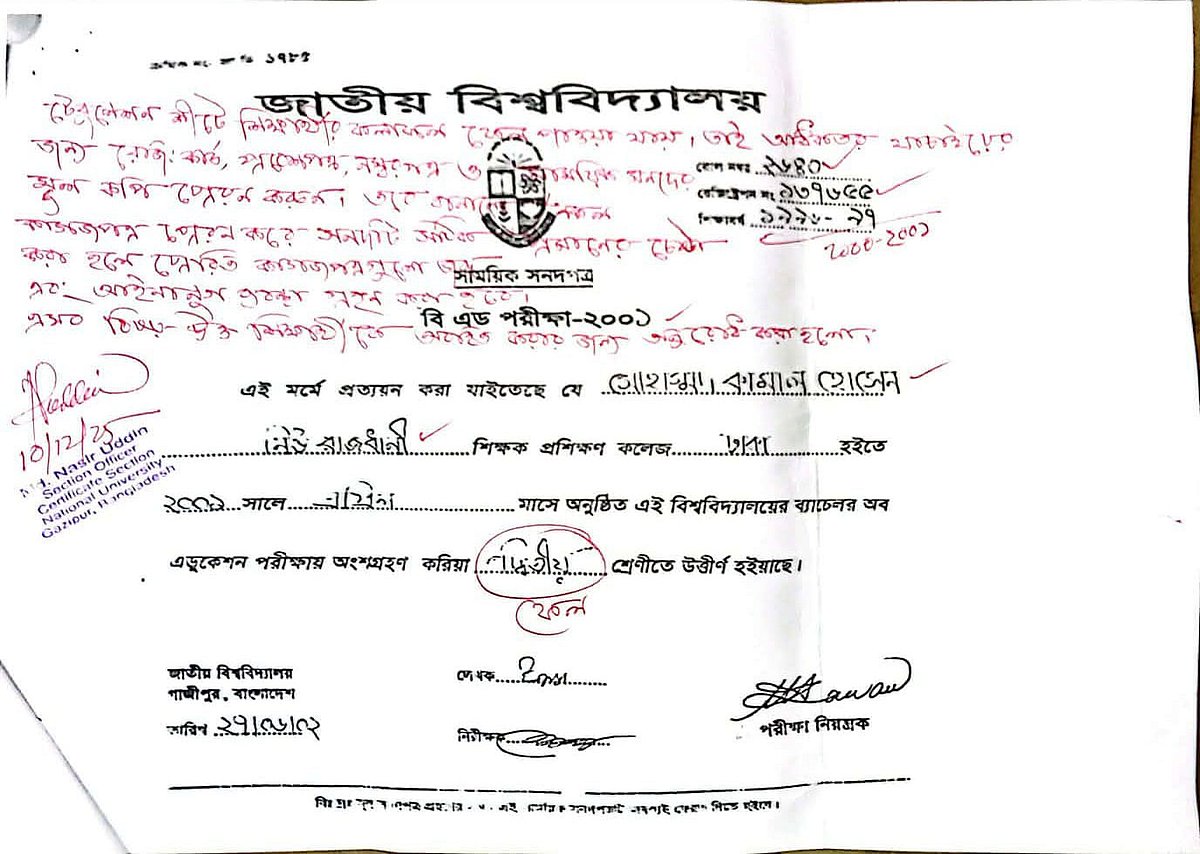 ১৭৮৪
জাতীয় বিশ্ববিদ্যালয়
টেবুলেশন শীটে শিক্ষার্থীর ফলাফল ফেল পাওয়া যায়, তাই অধিকতর যাচাইয়ের
জন্য রেজি: কার্ড, প্রবেশপত্র, নম্বরপত্র ও সাময়িক সনদের
মূল কপি প্রেরণ করুন। তবে নকল
কাগজপত্র প্রেরন করে সনদটি সঠিক প্রমানের চেষ্টা
করা হলে প্রেরিত কাগজপত্রগুলো
এবং আইনানুগ ব্যবস্থা গ্রহন করা হবে।
এসব বিষয় উক্ত শিক্ষার্থীকে অবহিত করার জন্য অনুরোধ করা হলো।
রোল নম্বর ২৬৪০
রেজিষ্ট্রেশন নং ১৩৭৬৫৫
শিক্ষাবর্ষ ১৯৯৬-৯৭
২০০০-২০০১
সাময়িক সনদপত্র
বি এড পরীক্ষা-২০০১
এই মর্মে প্রত্যয়ন করা যাইতেছে যে মোহাম্মাদ কামাল হোসেন
নিউ রাজধানী শিক্ষক প্রশিক্ষণ কলেজ ঢাকা হইতে
২০০১ সালে মাসে অনুষ্ঠিত এই বিশ্ববিদ্যালয়ের ব্যাচেলর অব
এডুকেশন পরীক্ষায় অংশগ্রহণ করিয়া দ্বিতীয় শ্রেণীতে উত্তীর্ণ হইয়াছে।
ফেল
10/12/25
Md. Nasir Uddin
Section Officer
Certificate Section
National University
Gazipur, Bangladesh
জাতীয় বিশ্ববিদ্যালয়
গাজীপুর, বাংলাদেশ
তারিখ ২৭/০৬/০২
লেখক
নিরীক্ষক
পরীক্ষা নিয়ন্ত্রক